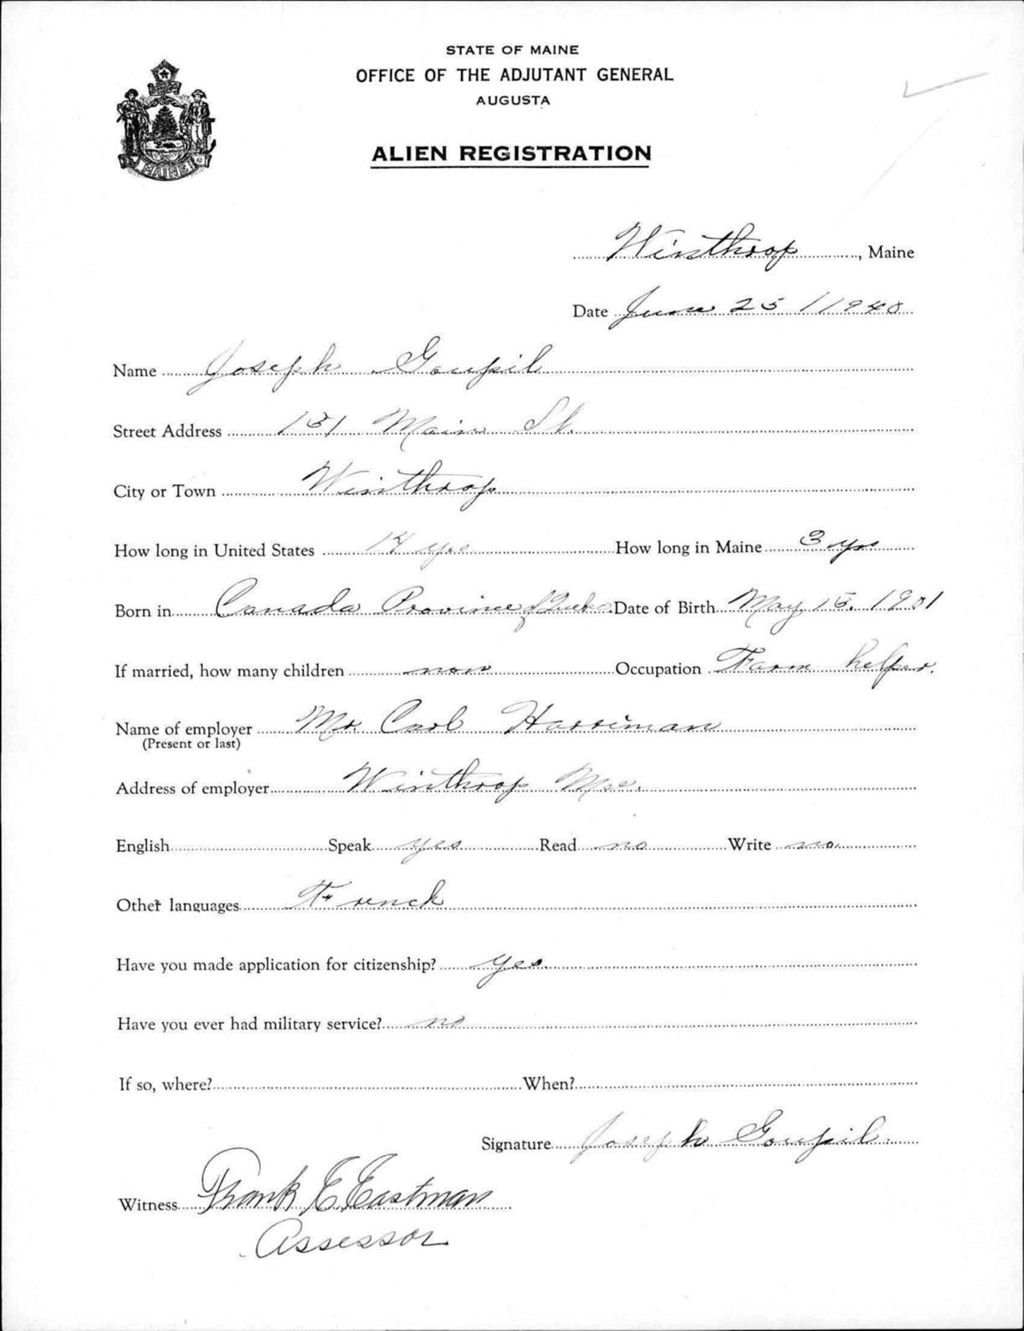 STATE OF MAINE
OFFICE OF THE ADJUTANT GENERAL
AUGUSTA
ALIEN REGISTRATION
MAINE
Winthrop, Maine
Date June 25 / 1940
Name Joseph Goupil
Street Address 131 Main St.
City or Town Winthrop
How long in United States yrs How long in Maine 3 yrs
Born in Canada Province of Date of Birth May 15, 1901
If married, how many children non Occupation Farm helper.
Name of employer Mr Carl Harriman
(Present or last)
Address of employer Winthrop Me.
English Speak yes Read no Write no.
Other languages French
Have you made application for citizenship? yes.
Have you ever had military service? no
If so, where? When?
Signature Joseph Goupil.
Witness Frank E Eastman
Assessor